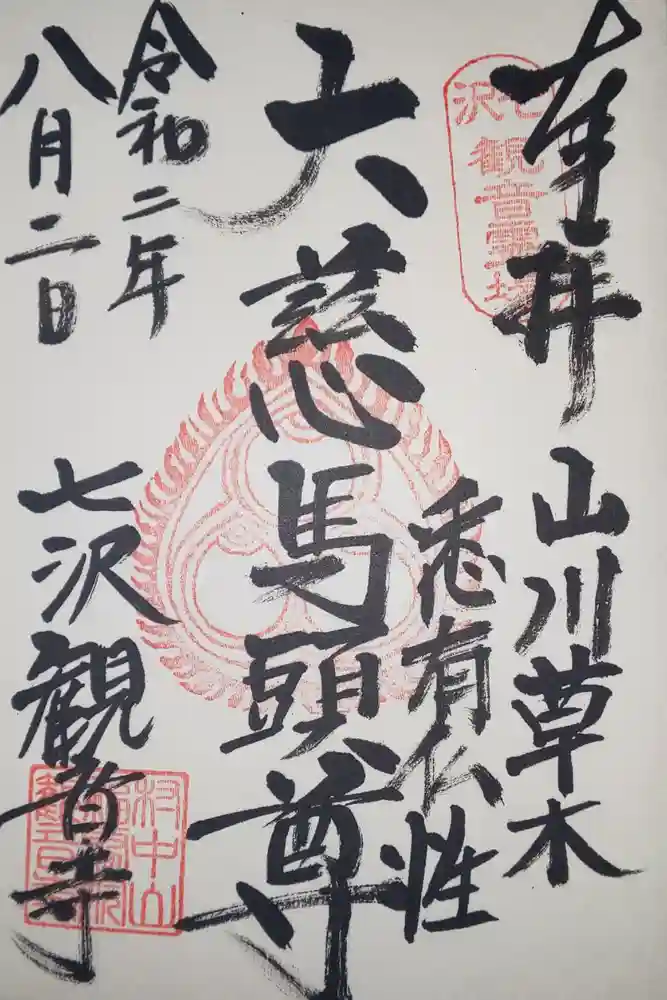 奉拝
七沢
観音霊場
山川草木
悉有仏性
大慈馬頭尊
令和二年
八月二日
七沢観音寺
村中山